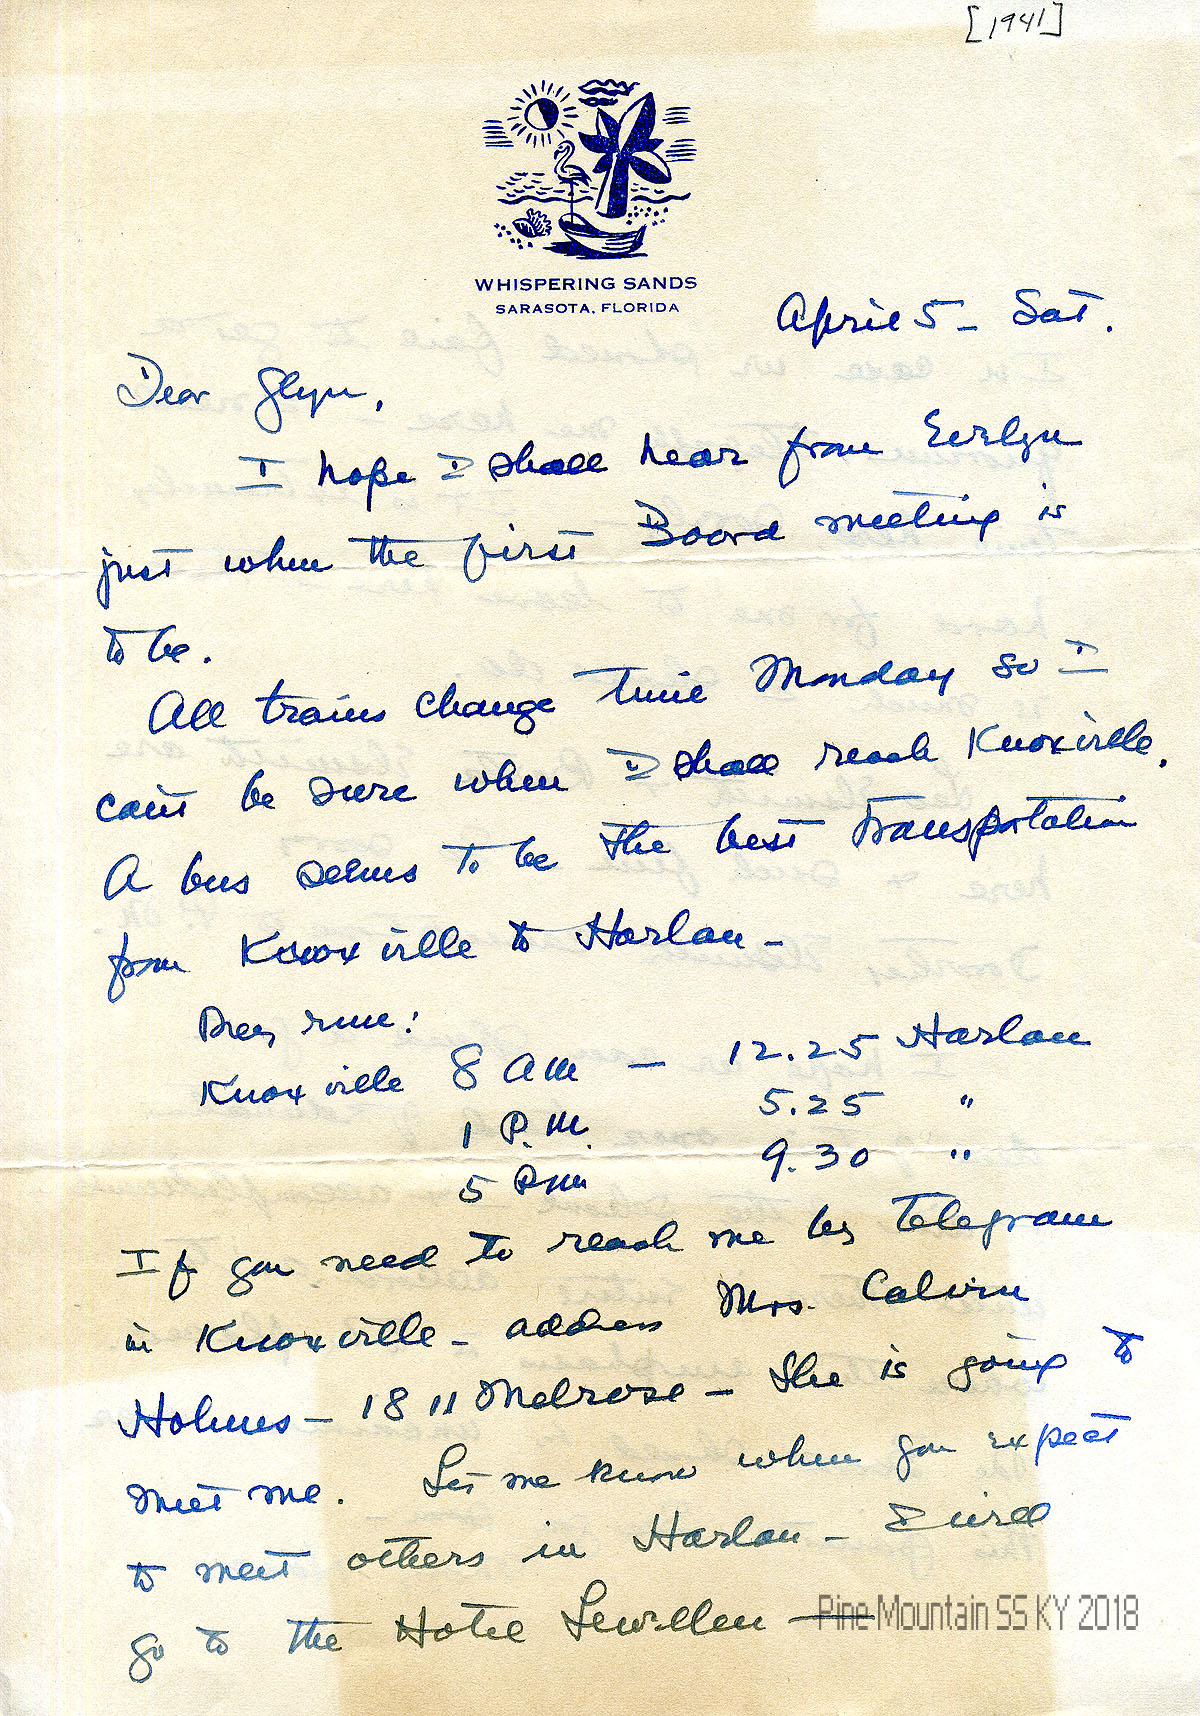 [1941]
WHISPERING SANDS
SARASOTA, FLORIDA
April 5 - Sat.
Dear Glyn,
I hope I shall hear from Evelyn
just when the first Board meeting is
to be.
All trains change time Monday so I
can't be sure when I shall reach Knoxville.
A bus seems to be the best transportation
from Knoxville to Harlan -
They run:
Knoxville 8 AM - 12.25 Harlan
1 P.M. 5.25 "
5 P.M. 9.30 "
If you need to reach me by telegram
in Knoxville - address Mrs. Calvin
Holmes - 1811 Melrose - She is going to
meet me. Let me know when you expect
to meet others in Harlan - I will
go to the Hotel Lewellen -
Pine Mountain SS KY 2018